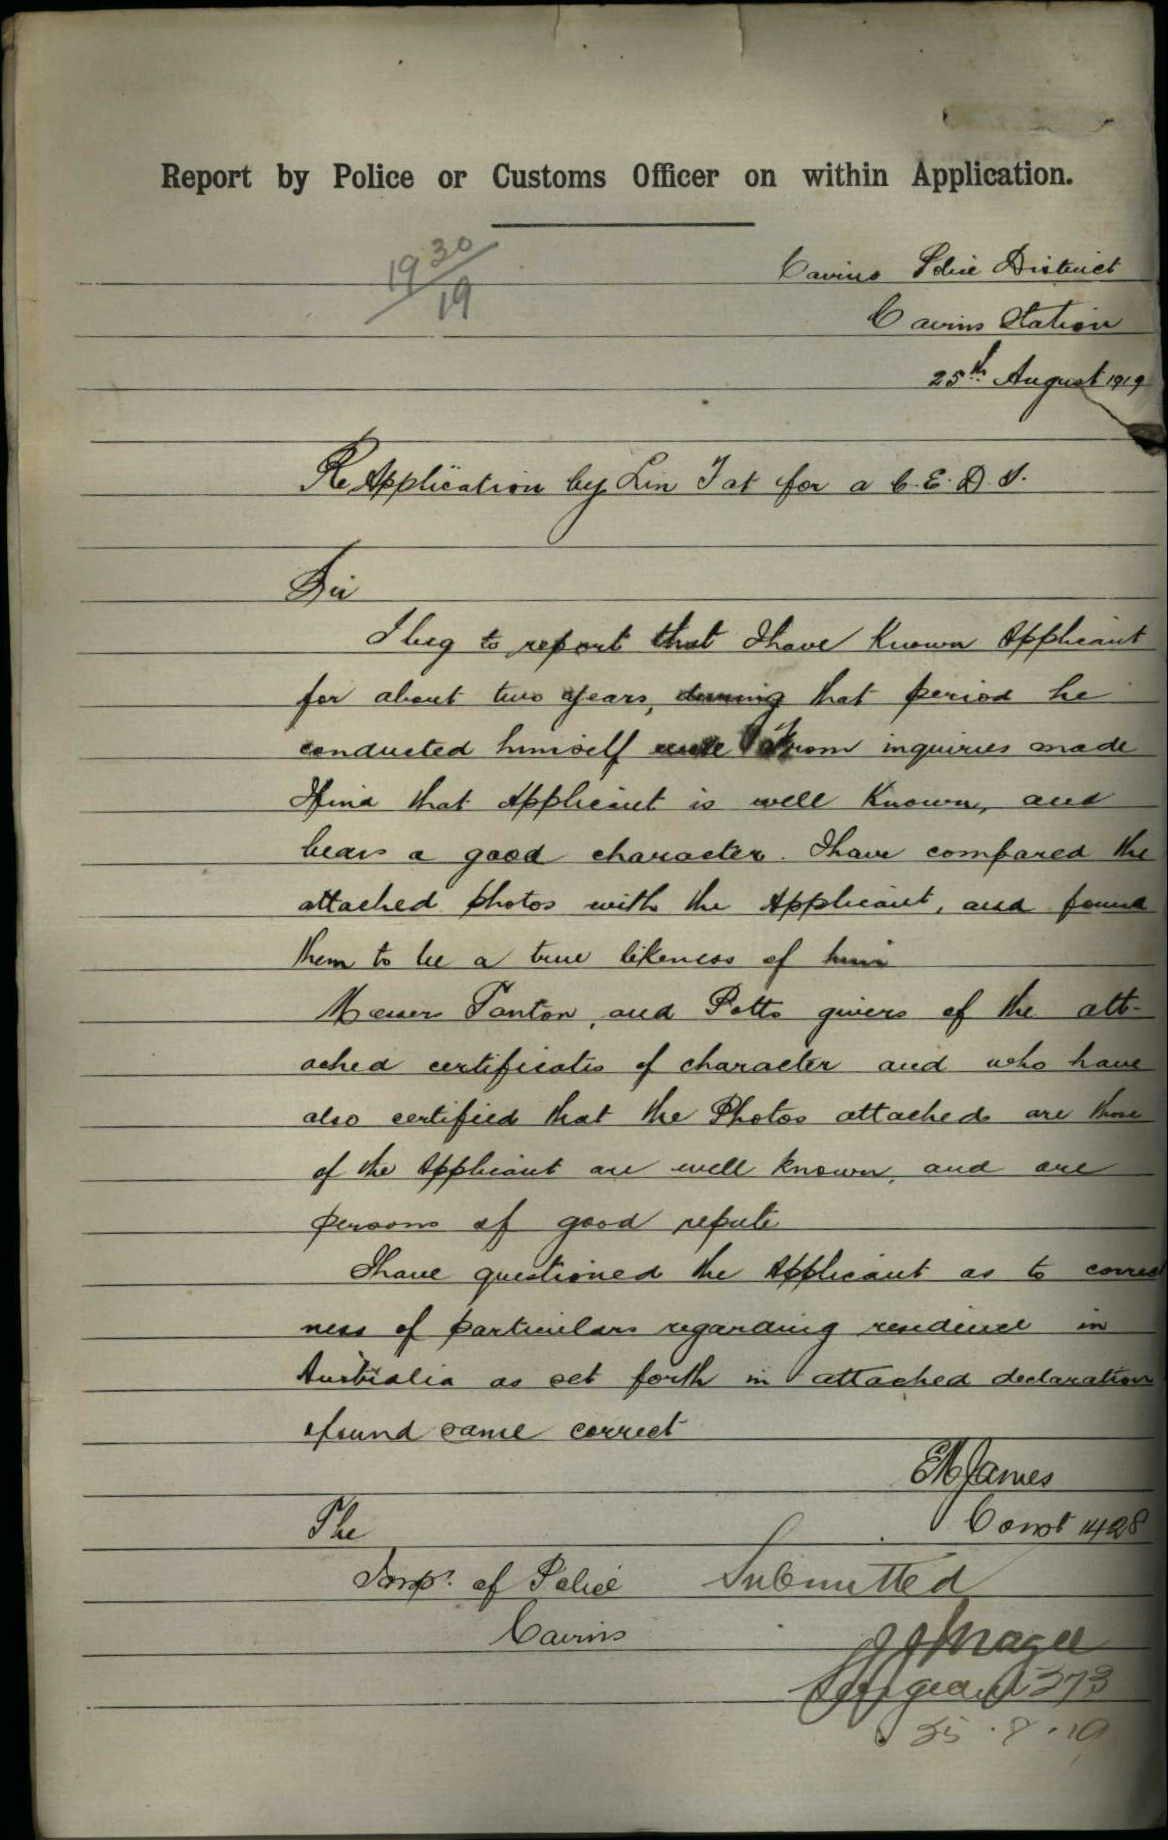 Report by Police or Customs Officer on within Application.
1930/19
Cairns Police District
Cairns Station
25th August 1919
Re Application by Lin Tat for a C.E.D.T.
Sir
I beg to report that I have Known Applicant
for about two years, during that period he
conducted himself well From inquiries made
I find that Applicant is well Known, and
bears a good character. I have compared the
attached photos with the Applicant, and found
them to be a true likeness of him
Messrs Tanton, and Potts givers of the att-
ached certificates of character and who have
also certified that the Photos attached are those
of the Applicant are well known, and are
persons of good repute
I have questioned the Applicant as to correct
ness of particulars regarding residence in
Australia as set forth in attached declaration
& found same correct
EM James
Const 1428
The
Insp. of Police
Cairns
Submitted
Magee
Sergeant 373
25.8.19